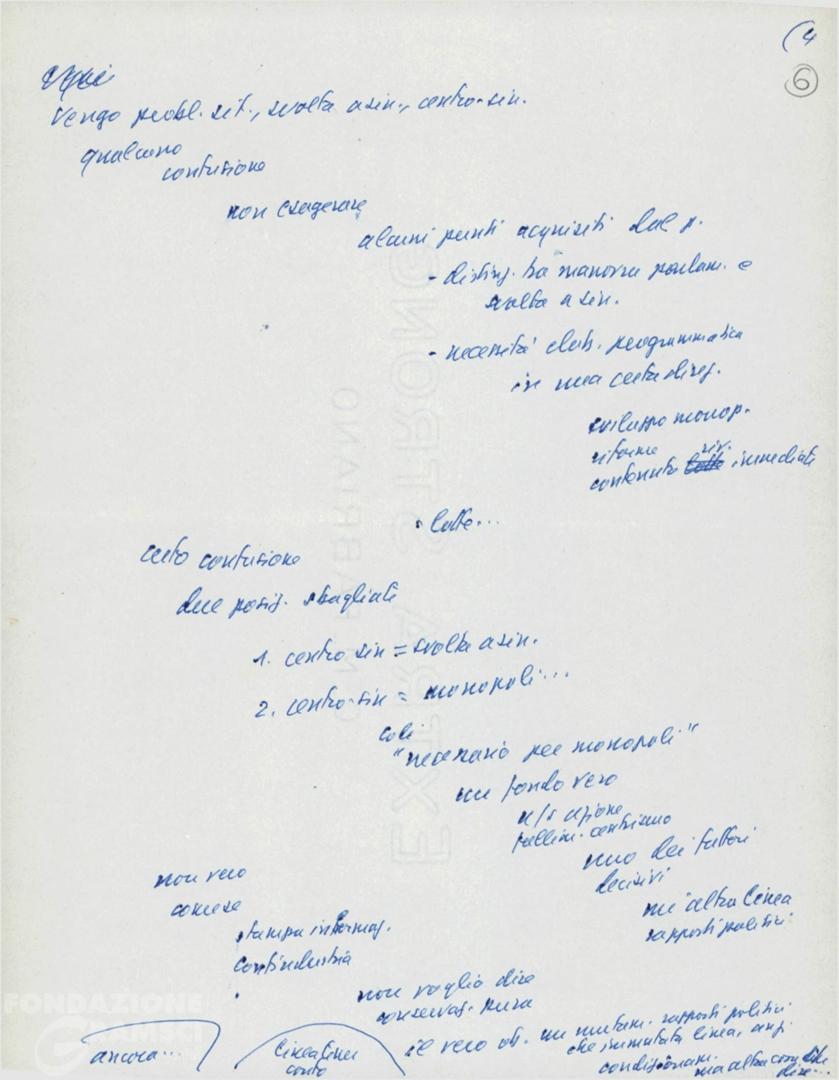 (4
6
Vengo probl. sit., svolta a sin., centro-sin.
qualcuno
confusione
non esagerare
alcuni punti acquisiti dal p.
- disting. tra manovra parlam. e
svolta a sin.
- necessità elab. programmatica
in una certa direz.
sviluppo monop.
riforme
contenuto riv. immediato
lotte...
certo confusione
due posiz. sbagliate
1. centro sin = svolta a sin.
2. centro-sin = monopoli...
così
"necessario per monopoli"
un fondo vero
n/s azione
fallim. centrismo
uno dei fattori
decisivi
un'altra linea
rapporti politici
non vero
come se
stampa informaz.
confindustria
non voglio dire
conservaz. pura
il vero ob. un mutam. rapporti politici
che immutata linea, anzi
condizionam.
ma altra cosa dire...
ancora...
linea
conto
FONDAZIONE
GRAMSCI
EXTRA STRONG
FABRIANO